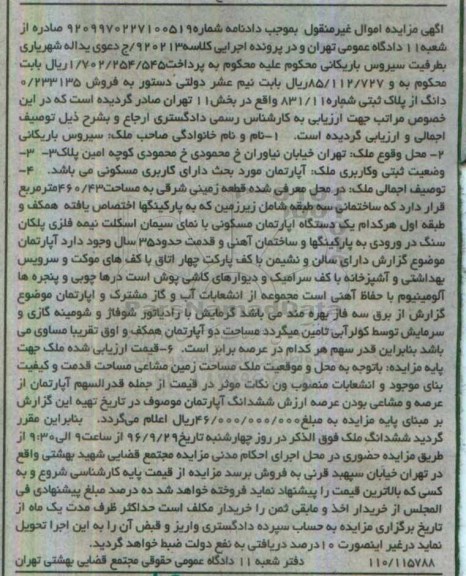 آگهی مزایده اموال غیرمنقول بموجب دادنامه شماره۹۲۰۹۹۷۰۲۲۷۱۰۰۵۱۹ صادره از
شعبه۱۱ دادگاه عمومی تهران و در پرونده اجرایی کلاسه۹۲۰۲۱۳/ج دعوی یداله شهریاری
بطرفیت سیروس باریکانی محکوم علیه محکوم به پرداخت۱/۷۰۲/۲۵۴/۵۴۵ریال بابت
محکوم به و ۸۵/۱۱۲/۷۲۷ریال بابت نیم عشر دولتی دستور به فروش ۰/۲۳۳۱۳۵
دانگ از پلاک ثبتی شماره۸۳۱/۱۱ واقع در بخش۱۱ تهران صادر گردیده است که در این
خصوص مراتب جهت ارزیابی به کارشناس رسمی دادگستری ارجاع و بشرح ذیل توصیف
اجمالی و ارزیابی گردیده است. ۱-نام و نام خانوادگی صاحب ملک: سیروس باریکانی
۲- محل وقوع ملک: تهران خیابان نیاوران خ محمودی خ محمودی کوچه امین پلاک۳- ۳-
وضعیت ثبتی وکاربری ملک: آپارتمان مورد بحث دارای کاربری مسکونی می باشد. ۴-
توصیف اجمالی ملک: در محل معرفی شده قطعه زمینی شرقی به مساحت۴۶۰/۴۳مترمربع
قرار دارد که ساختمانی سه طبقه شامل زیرزمین که به پارکینگها اختصاص یافته همکف و
طبقه اول هرکدام یک دستگاه آپارتمان مسکونی با نمای سیمان اسکلت نیمه فلزی پلکان
سنگ در ورودی به پارکینگها و ساختمان آهنی و قدمت حدود۳۵سال وجود دارد آپارتمان
موضوع گزارش دارای سالن و نشیمن با کف پارکت چهار اتاق با کف های موکت و سرویس
بهداشتی و آشپزخانه با کف سرامیک و دیوارهای کاشی پوش است درها چوبی و پنجره ها
آلومینیوم با حفاظ آهنی است مجموعه از انشعابات آب و گاز مشترک و آپارتمان موضوع
گزارش از برق سه فاز بهره مند می باشد گرمایش با رادیاتور شوفاژ و شومینه گازی و
سرمایش توسط کولرآبی تامین میگردد مساحت دو آپارتمان همکف و اول تقریبا مساوی می
باشد بنابراین قدر سهم هر کدام در عرصه برابر است. ۶-قیمت ارزیابی شده ملک جهت
پایه مزایده: باتوجه به محل و موقعیت ملک مساحت زمین مشاعی مساحت قدمت و کیفیت
بنای موجود و انشعابات منصوب ون نکات موثر در قیمت از جمله قدرالسهم آپارتمان از
عرصه و مشاعی بودن عرصه ارزش ششدانگ آپارتمان موصوف در تاریخ تهیه این گزارش
بر مبنای پایه مزایده به مبلغ۴۶/۰۰۰/۰۰۰/۰۰۰ریال اعلام می‌گردد. بنابراین مقرر
گردید ششدانگ ملک فوق الذکر در روز چهارشنبه تاریخ۹۶/۹/۲۹ از ساعت۹ الی۹:۳۰ از
طریق مزایده حضوری در محل اجرای احکام مدنی مزایده مجتمع قضایی شهید بهشتی واقع
در تهران خیابان سپهبد قرنی به فروش برسد مزایده از قیمت پایه کارشناسی شروع و به
کسی که بالاترین قیمت را پیشنهاد نماید فروخته خواهد شد ده درصد مبلغ پیشنهادی فی
المجلس از خریدار اخذ و مابقی ثمن را خریدار مکلف است حداکثر ظرف مدت یک ماه از
تاریخ برگزاری مزایده به حساب سپرده دادگستری واریز و قبض آن را به این اجرا تحویل
نماید درغیر اینصورت ۱۰درصد دریافتی به نفع دولت ضبط خواهد گردید.
۱۱۰/۱۱۵۷۸۸ دفتر شعبه ۱۱ دادگاه عمومی حقوقی مجتمع قضایی بهشتی تهران